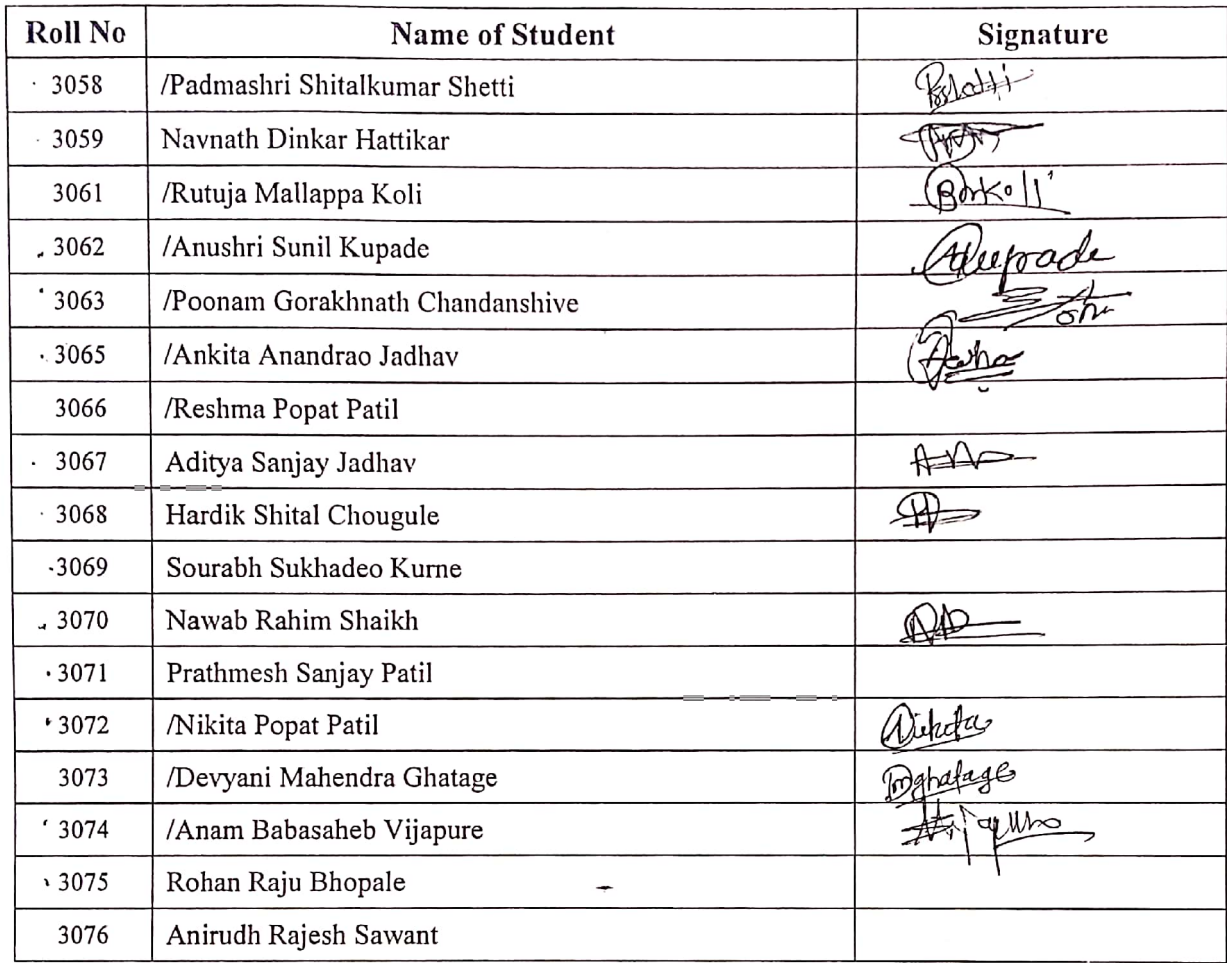 Roll No Name of Student Signature
3058 /Padmashri Shitalkumar Shetti
3059 Navnath Dinkar Hattikar
3061 /Rutuja Mallappa Koli
3062 /Anushri Sunil Kupade
3063 /Poonam Gorakhnath Chandanshive
3065 /Ankita Anandrao Jadhav
3066 /Reshma Popat Patil
3067 Aditya Sanjay Jadhav
3068 Hardik Shital Chougule
3069 Sourabh Sukhadeo Kurne
3070 Nawab Rahim Shaikh
3071 Prathmesh Sanjay Patil
3072 /Nikita Popat Patil Nikita
3073 /Devyani Mahendra Ghatage Dmghatage
3074 /Anam Babasaheb Vijapure
3075 Rohan Raju Bhopale
3076 Anirudh Rajesh Sawant